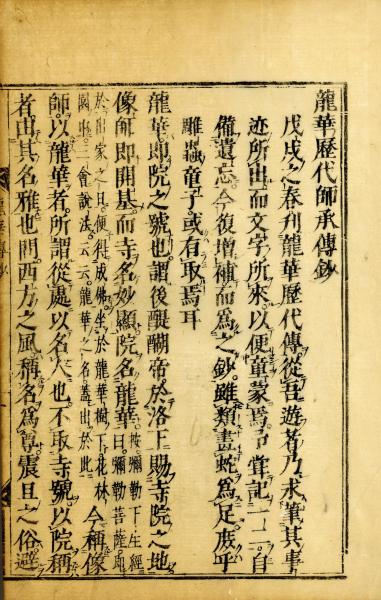 龍華歷代師承傳鈔
戊戌之春刋龍華歷代傳從吾遊者乃求筆其事
迹所由而文字所來以便童蒙焉予嘗記一二自
備遺忘今復增補而爲之鈔雖類畫蛇爲足庶乎
雕蟲童子或有取焉耳
龍華即院之號也謂後醍醐帝於洛下賜寺院之地
像師即開基而寺名妙顯院名龍華按彌勒下生經曰彌勒菩薩即
於出家之日便得成佛坐於龍華樹下花林
園出三會說法云云龍華之名蓋出於此今稱像
師以龍華者所謂從處以名大也不取寺號以院稱
者由其名雅也問西方之風稱名爲尊震旦之俗避